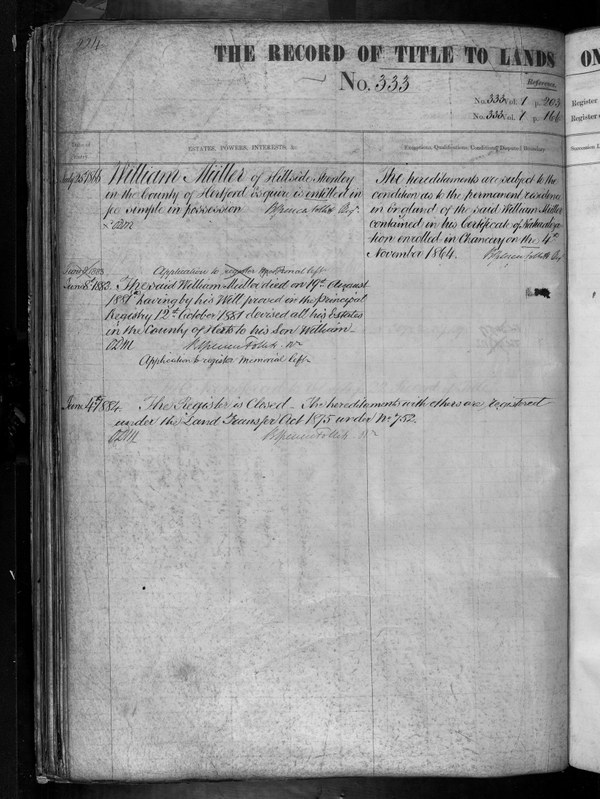 224
THE RECORD OF TITLE TO LANDS
ON
No. 333
Reference.
No. 333 Vol. 1 p. 203
No. 333 Vol. 1 p. 166
Register
Register
Date of
ESTATES, POWERS, INTERESTS, &c.
Exceptions, Qualifications, Conditions,
Succession
1866 William Müller of Hillside Shenley
in the County of Hertford Esquire is entitled in
fee simple in possession
The hereditaments are subject to the
condition as to the permanent residence
in England of the said William Müller
contained in his Certificate of Naturaliza
tion enrolled in Chancery on the 4th
November 1864.
Application to register Memorial left
June 8th 1883. The said William Müller died on 19th August
1881 having by his Will proved in the Principal
Registry 12th October 1881 devised all his Estates
in the County of Herts to his Son William
Application to register Memorial left
June 4th 1884. The Register is Closed. The hereditaments with others are registered
under the Land Transfer Act 1875 under No 752.